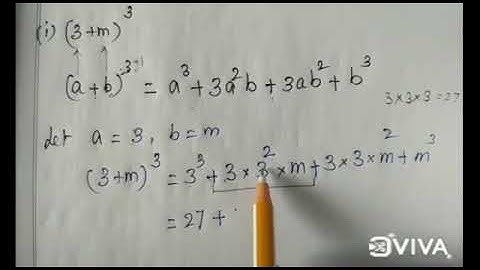 (i) (3+m)³
(a+b)³ = a³ + 3a²b + 3ab² + b³
3×3×3=27
let a = 3, b = m
(3+m)³ = 3³ + 3×3²×m + 3×3×m² + m³
= 27 +
VIVA